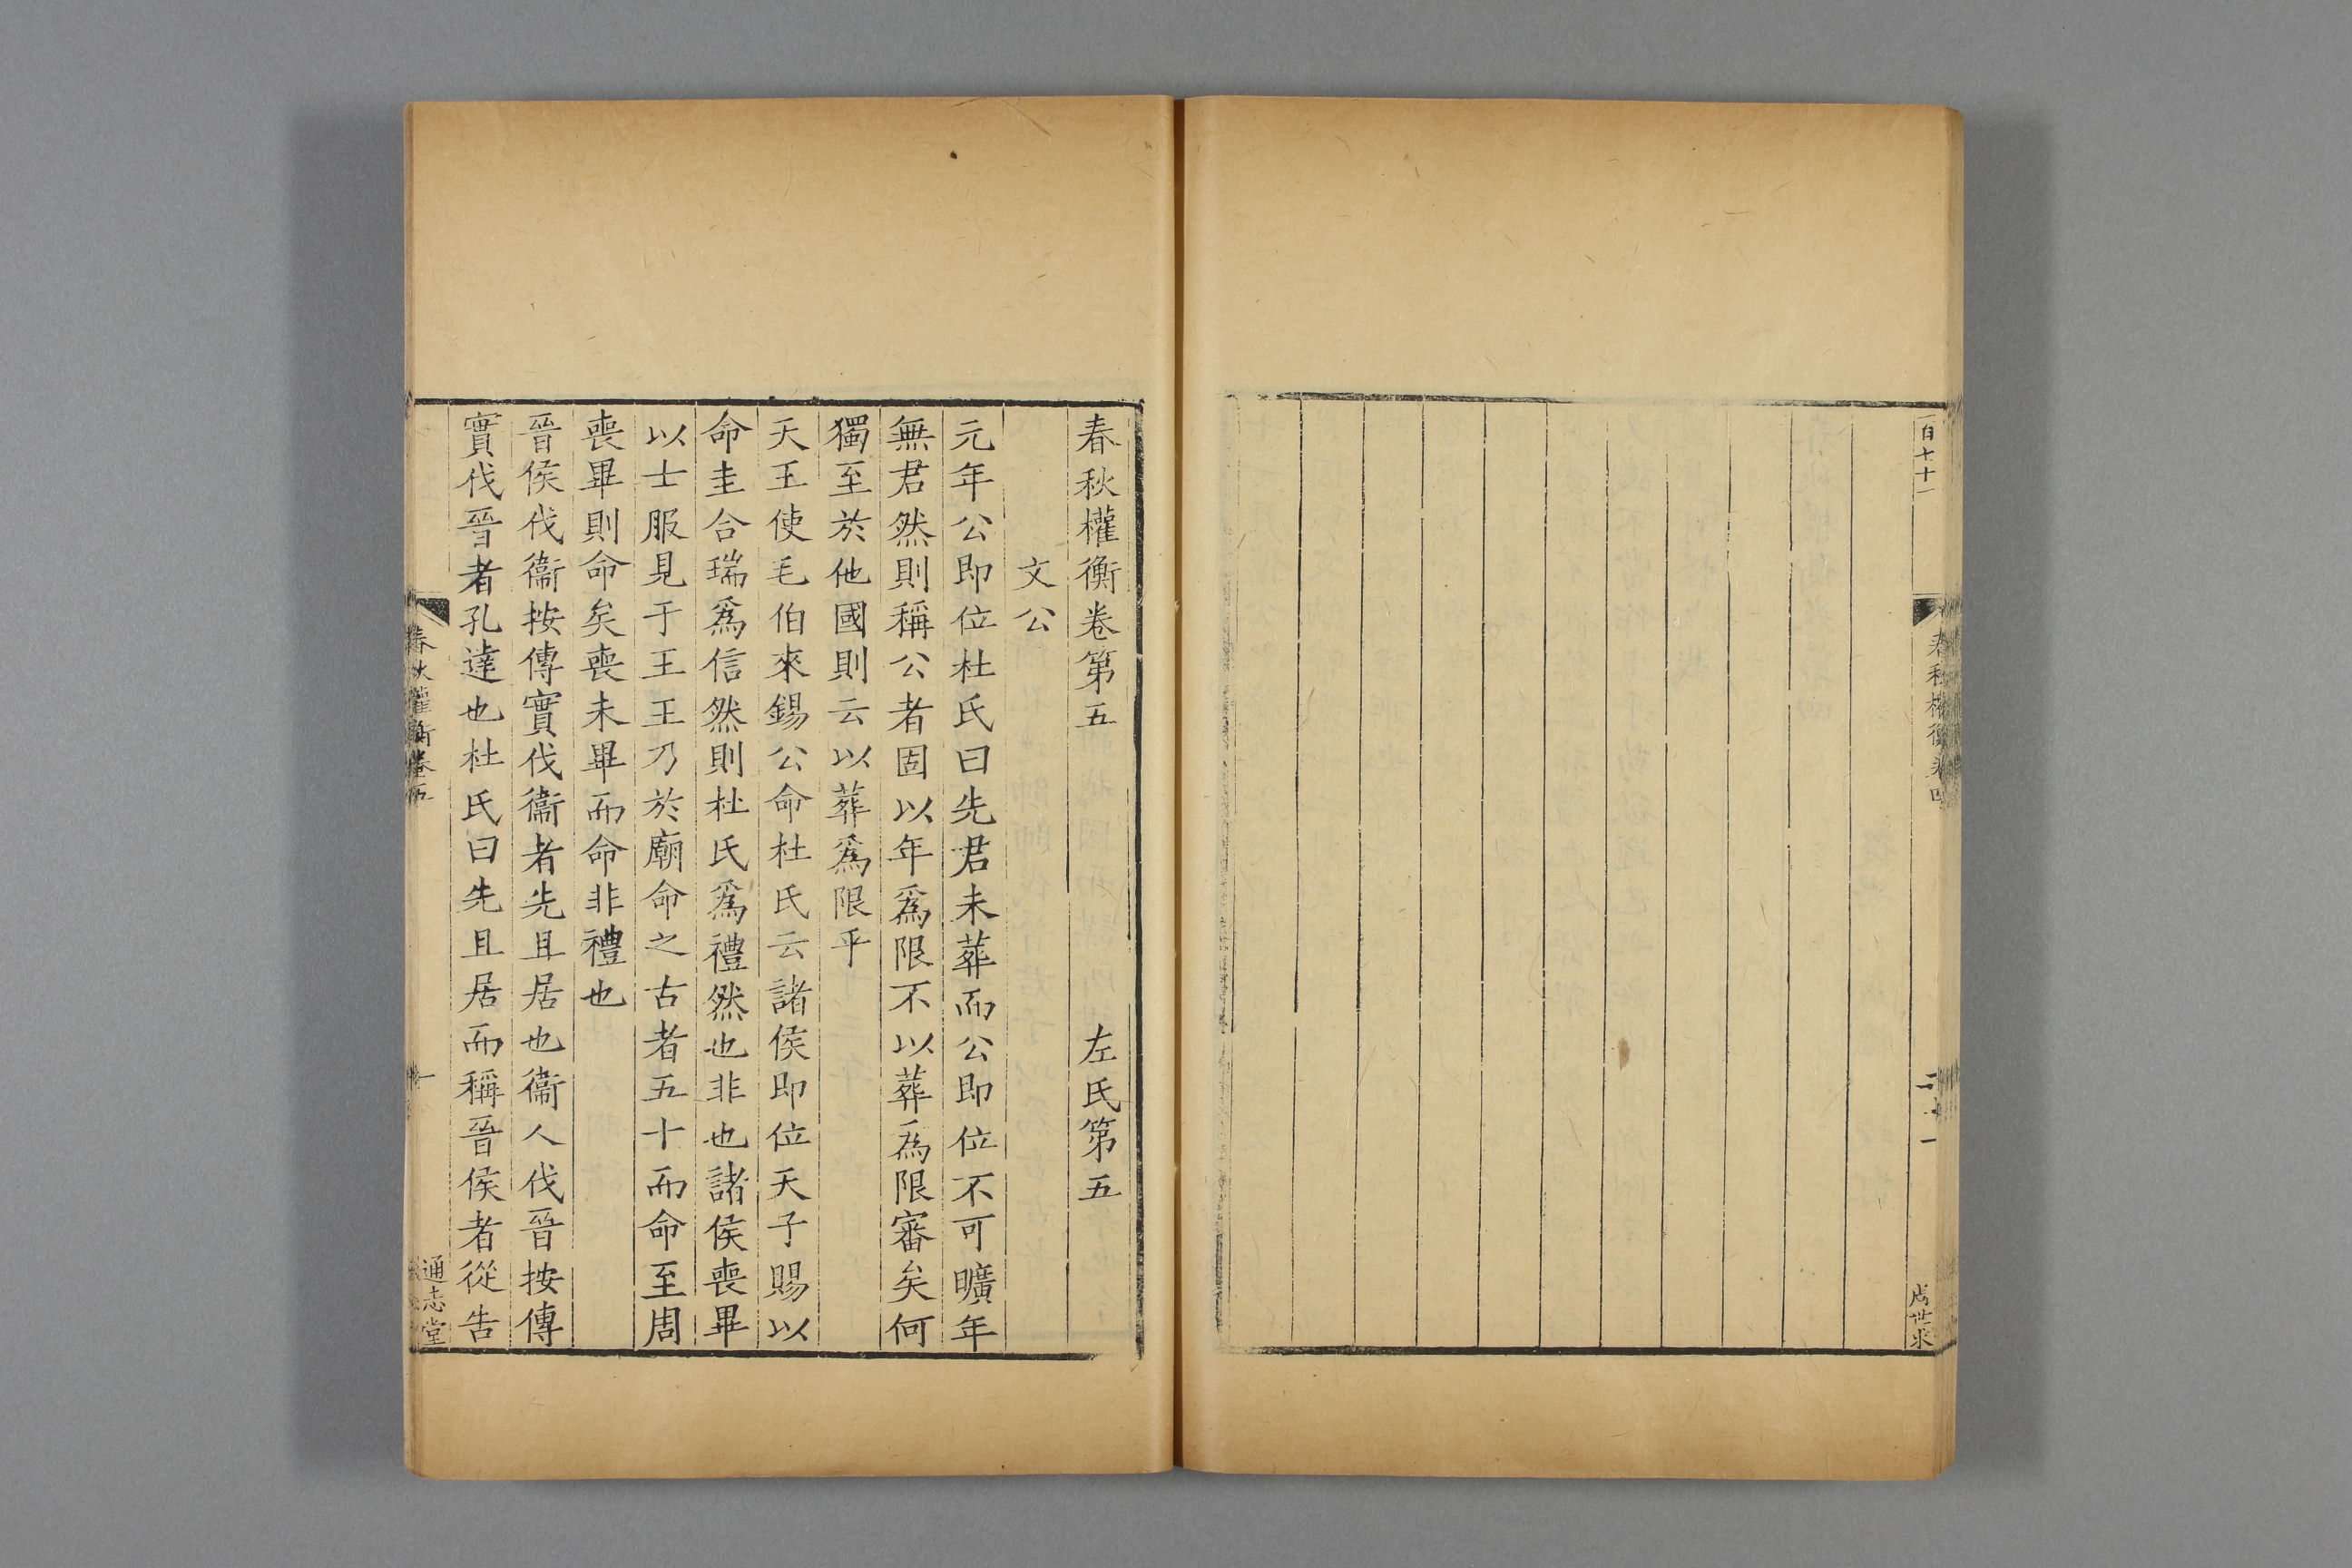 百七十一
春秋權衡卷四
二十一
春秋權衡卷第五 左氏第五
文公
元年公即位杜氏曰先君未葬而公即位不可曠年
無君然則稱公者固以年爲限不以葬爲限審矣何
獨至於他國則云以葬爲限乎
天王使毛伯來錫公命杜氏云諸侯即位天子賜以
命圭合瑞爲信然則杜氏爲禮然也非也諸侯喪畢
以士服見于王王乃於廟命之古者五十而命至周
喪畢則命矣喪未畢而命非禮也
晉侯伐衞按傳實伐衞者先且居也衞人伐晉按傳
實伐晉者孔達也杜氏曰先且居而稱晉侯者從告
春秋權衡卷五
一
通志堂